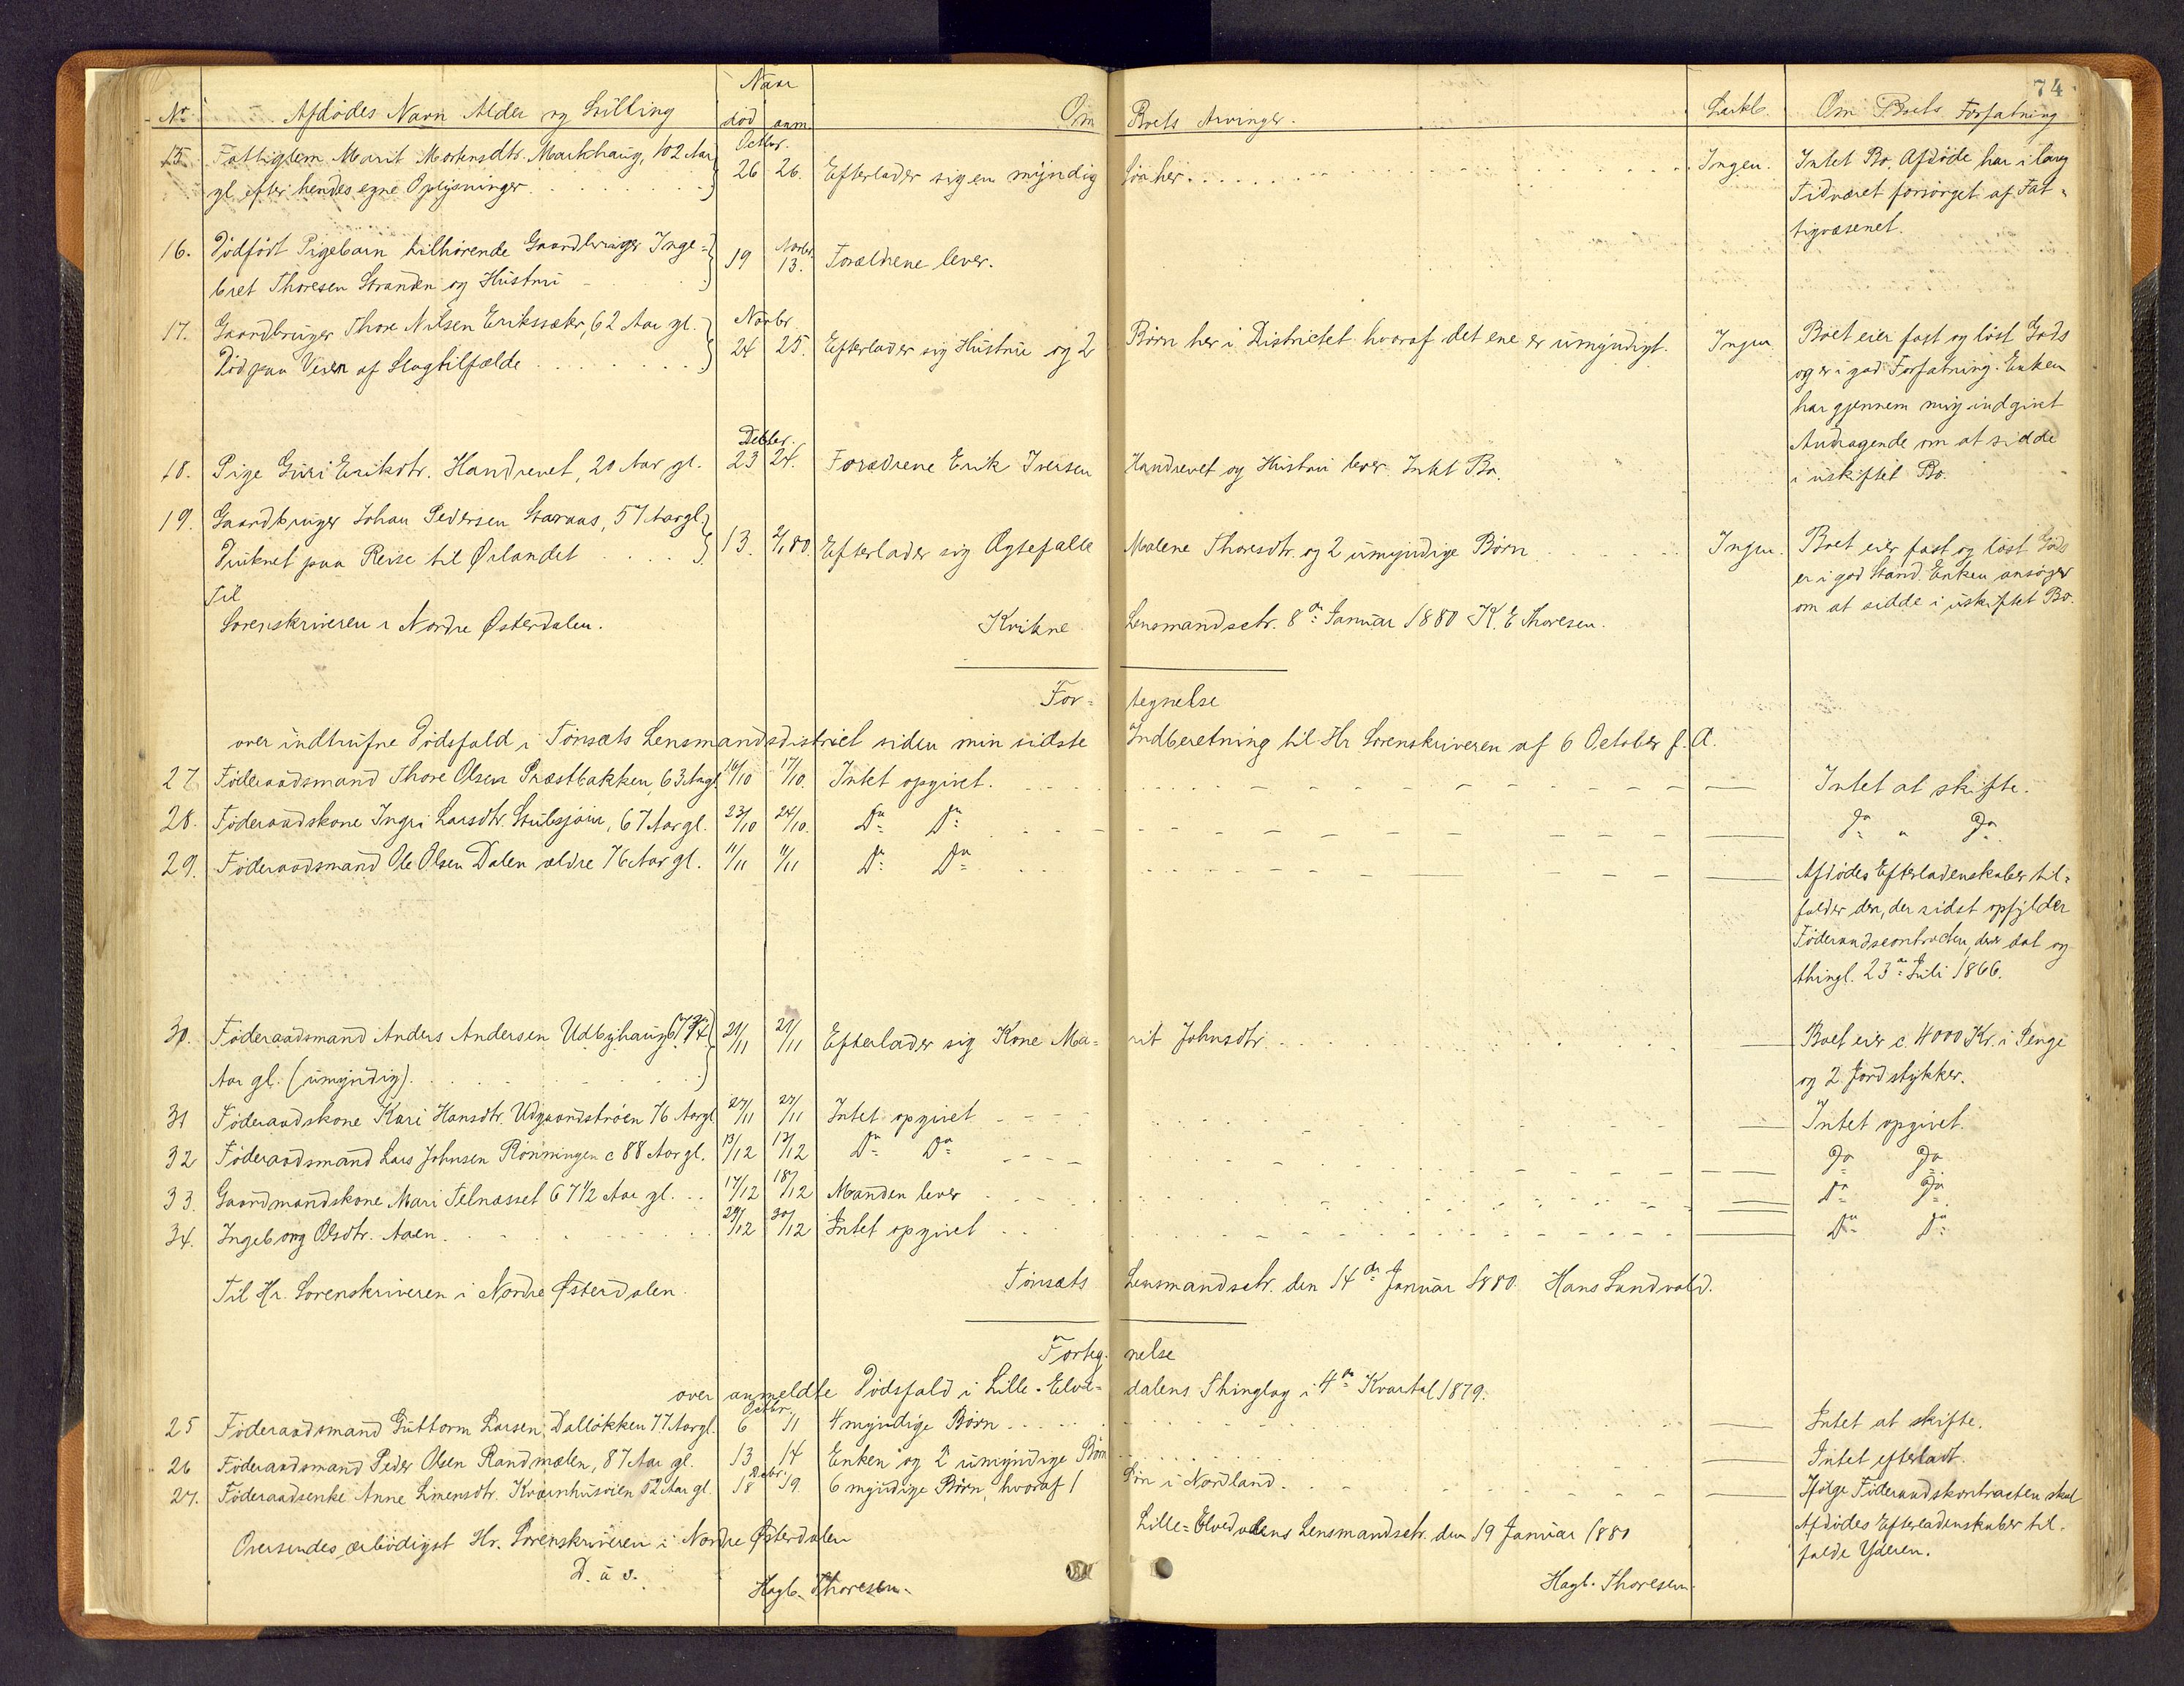 74
No Afdødes Navn Alder og Stilling Naar død anm. Om Boets Arvinger. Om Boets Forfatning
15. Fattiglem Marit Mortensdtr. Markhaug, 102 Aar Octbr. 26 26. Efterlader sig en myndig Søn her. Ingen. Intet Bo. Afdøde har i lang
gl. efter hendes egne Oplysninger Tid været forsørget af Fat-
tigvæsenet.
16. Dødfødt Pigebarn tilhørende Gaardbruger Inge- 19 Novbr. 13. Forældrene lever.
bret Thoresen Stranden og Hustru
17. Gaardbruger Thore Nilsen Eriksæter, 62 Aar gl. Novbr. 24 25. Efterlader sig Hustru og 2 Børn her i Districtet hvoraf det ene er umyndigt. Ingen Boet eier fast og løst Gods
Død paa Veien af Slagtilfælde og er i god Forfatning. Enken
har gjennem mig indgivet
Andragende om at sidde
i uskiftet Bo.
18. Pige Guri Eriksdtr. Handrevet, 20 Aar gl. Decbr. 23 24. Forældrene Erik Iversen Handrevet og Hustru lever. Intet Bo.
19. Gaardbruger Johan Pedersen Stavaas, 57 Aar gl. 13. 2/1 80. Efterlader sig Ægtefælle Malene Thoresdtr. og 2 umyndige Børn Ingen. Boet eier fast og løst Gods
Druknet paa Reise til Ørlandet er i god Stand. Enken ansøger
om at sidde i uskiftet Bo.
Til
Sorenskriveren i Nordre Østerdalen. Kvikne Lensmandsctr. 8de Januar 1880 K. E. Thoresen.
For- tegnelse
over indtrufne Dødsfald i Tønsæts Lensmandsdistrict siden min sidste Indberetning til Hr Sorenskriveren af 6 October f. A.
27. Føderaadsmand Thore Olsen Præstbakken, 63 Aar gl. 16/10 17/10. Intet opgivet. Intet at skifte.
28. Føderaadskone Ingri Larsdtr. Stubsjøen, 67 Aar gl. 23/10 24/10. Do Do Do " Do
29. Føderaadsmand Ole Olsen Dalen ældre 76 Aar gl. 11/11 11/11 Do Do Afdødes Efterladenskaber til-
falder den, der sidst opfylder
Føderaadscontracten, der er dat. og
thingl. 23de Juli 1866.
30. Føderaadsmand Anders Andersen Udbyhaug 67 3/4 21/11 21/11 Efterlader sig Kone Ma- rit Johnsdtr. Boet eier c. 4000 Kr. i Penge
Aar gl. (umyndig). og 2 Jordstykker.
31 Føderaadskone Kari Hansdtr. Udgaardstrøen 76 Aar gl 27/11 27/11 Intet opgivet Intet opgivet.
32 Føderaadsmand Lars Johnsen Rønningen c 88 Aar gl. 13/12 13/12 Do Do Do Do
33. Gaardmandskone Mari Telnæsset 67 1/2 Aar gl. 17/12 18/12 Manden lever Do Do
34. Ingeborg Olsdtr. Aaen. 29/12 30/12 Intet opgivet Do Do
Til Hr. Sorenskriveren i Nordre Østerdalen. Tønsæts Lensmandsctr. den 14de Januar 1880. Hans Sandvold.
Forteg- nelse
over anmeldte Dødsfald i Lille-Elve- dalens Thinglag i 4de Kvartal 1879.
25 Føderaadsmand Guttorm Larsen, Dalløkken 77 Aar gl. Octbr. 6 11 4 myndige Børn Intet at skifte.
26 Føderaadsmand Peder Olsen Randmælen, 87 Aar gl. 13 14 Enken og 2 umyndige Børn Intet efterladt.
27. Føderaadsenke Anne Simensdtr. Kværnhusøien 52 Aar gl. Decbr. 18 19. 6 myndige Børn, hvoraf 1 Søn i Nordland. Ifølge Føderaadskontracten skal
Afdødes Efterladenskaber til-
falde Yderen.
Oversendes ærbødigst Hr. Sorenskriveren i Nordre Østerdalen Lille-Elvedalens Lensmandsctr. den 19 Januar 1880
D. u. s.
Hagb. Thoresen. Hagb. Thoresen.